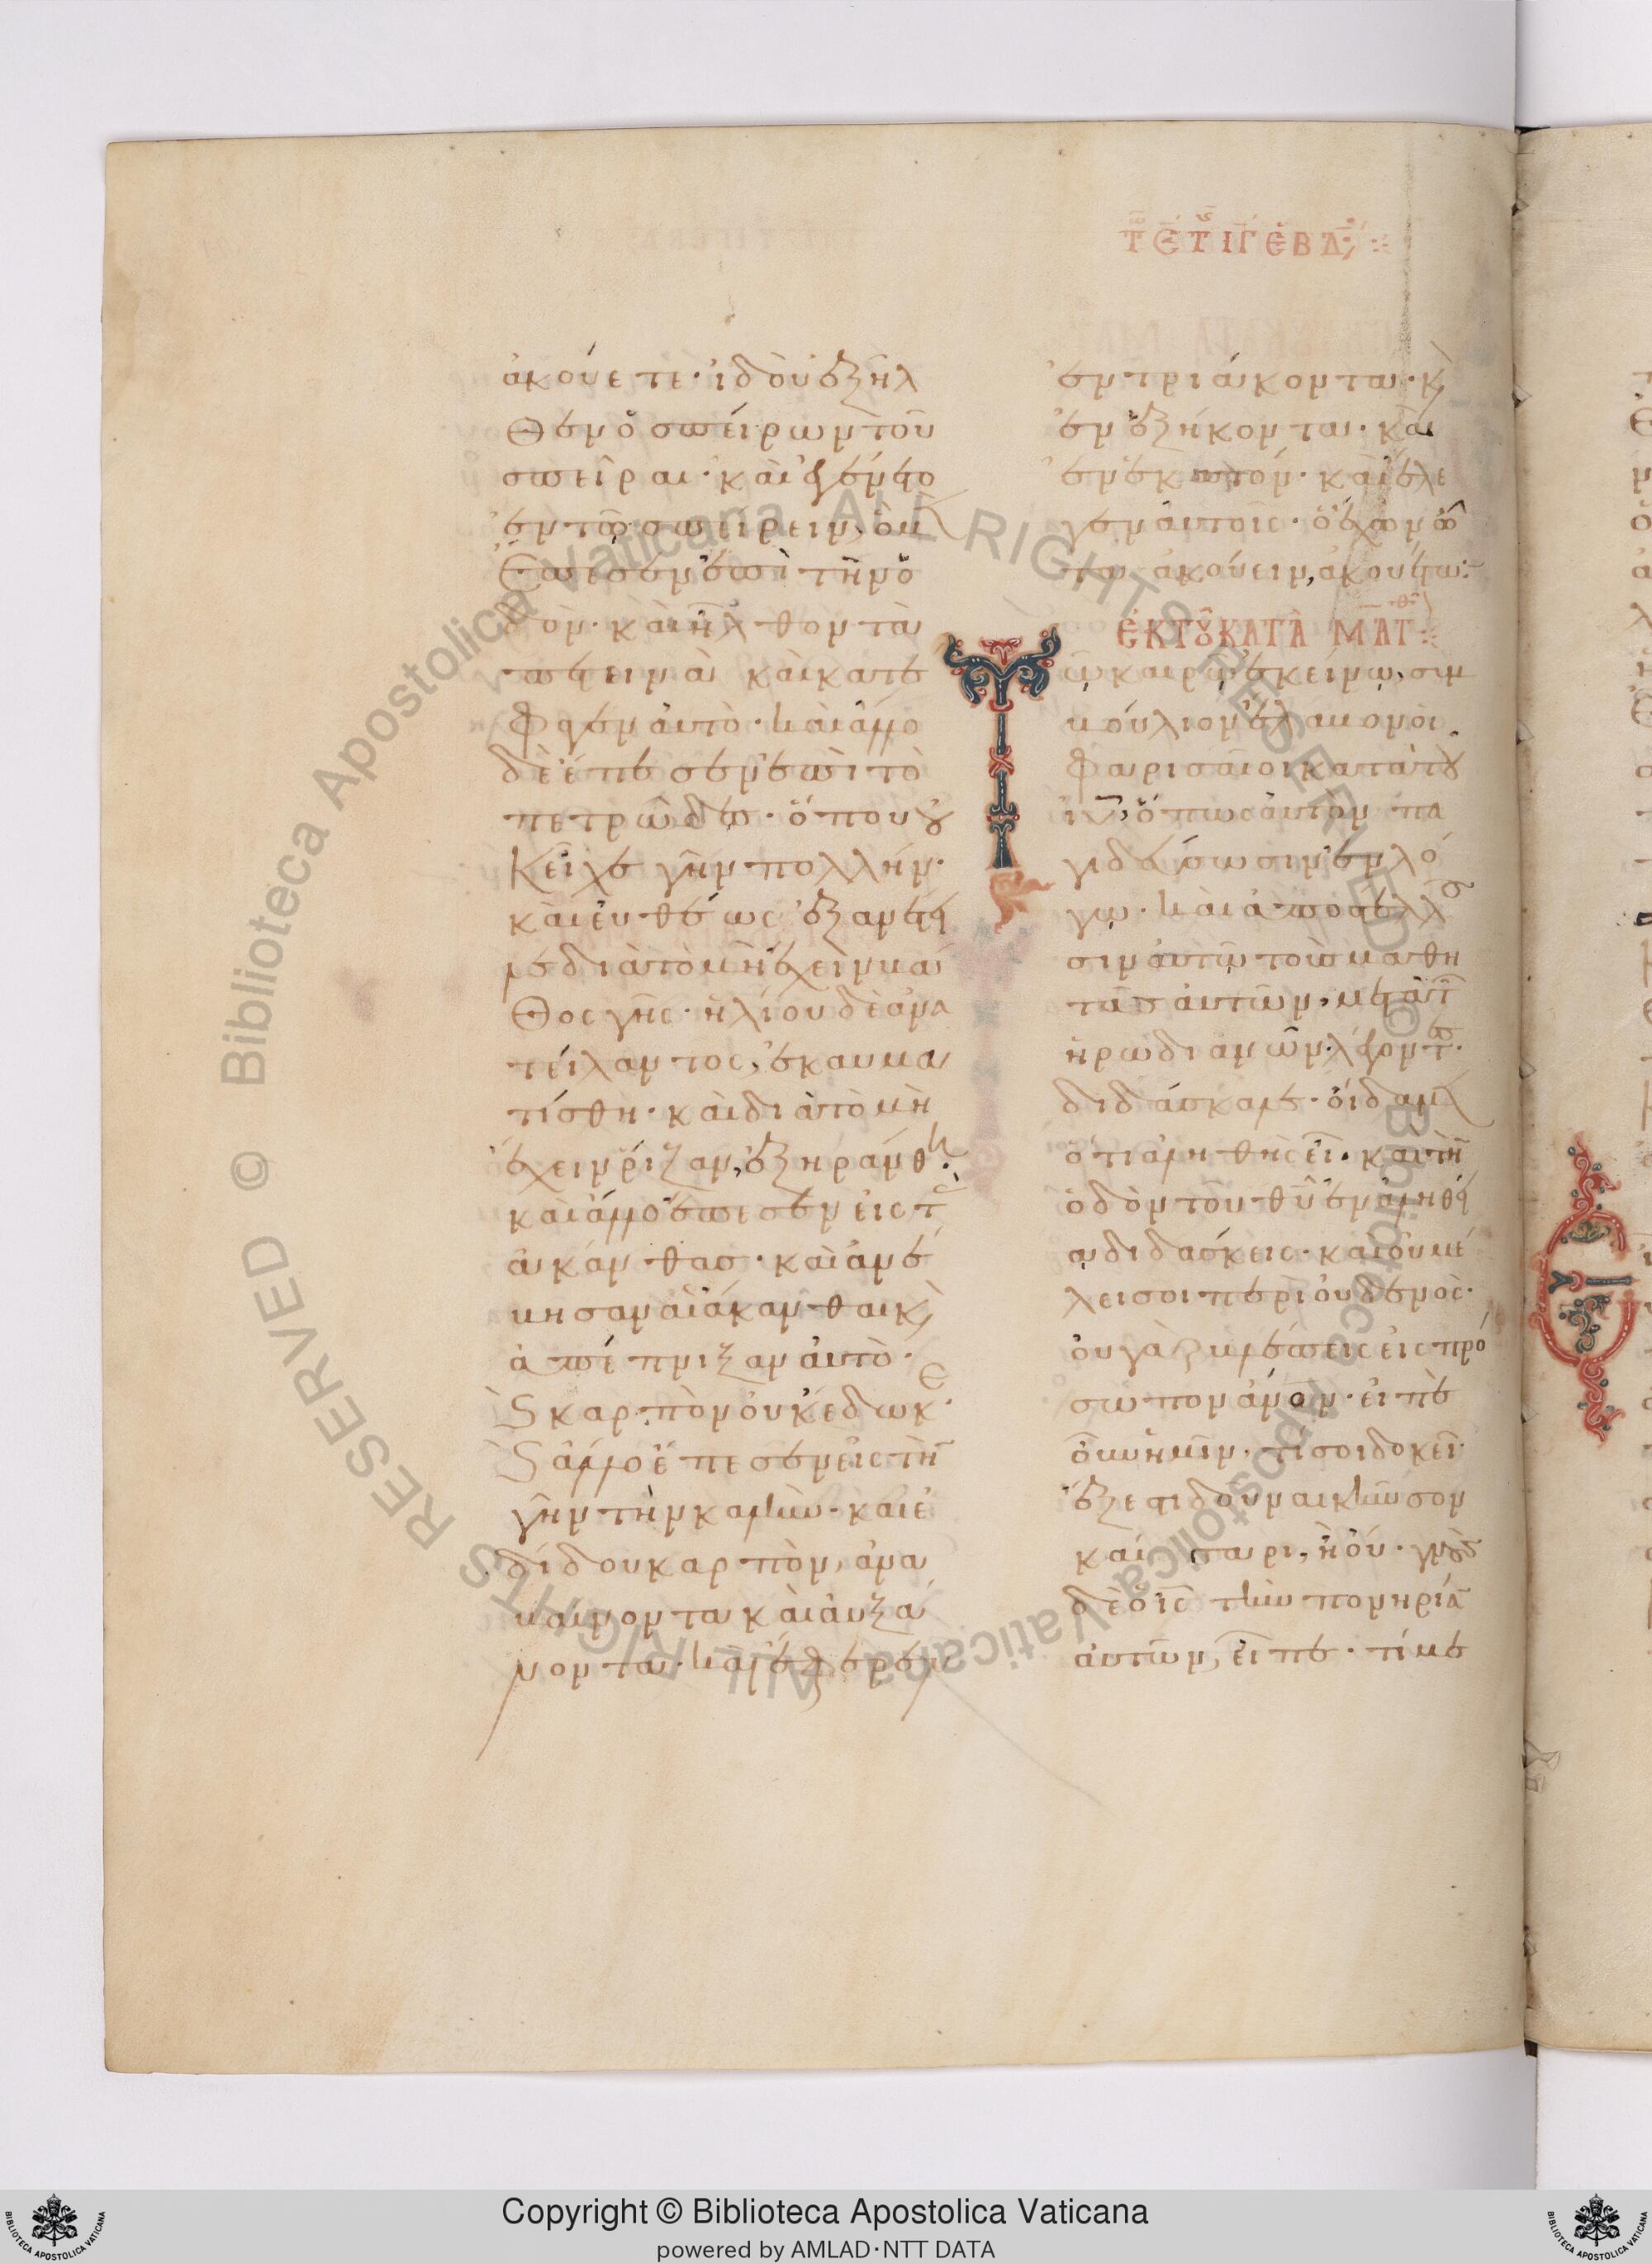 ἀκούετε· ἰδοὺ ἐξῆλ
θεν ὁ σπείρων τοῦ
σπεῖραι· καὶ ἐγένετο
ἐν τῷ σπείρειν, ὃ μὲν
ἔπεσεν ἐπὶ τὴν ὁ
δὸν· καὶ ἦλθον τὰ
πετεινὰ καὶ κατέ
φαγεν αὐτὸ· καὶ ἄλλο
δὲ ἔπεσεν ἐπὶ τὸ
πετρῶδες· ὅπου οὐ
κ εἶχε γῆν πολλήν·
καὶ εὐθέως ἐξανέτει
λε διὰ τὸ μὴ ἔχειν βά
θος γῆς· ἡλίου δὲ ἀνα
τείλαντος, ἐκαυμα
τίσθη· καὶ διὰ τὸ μὴ
ἔχειν ῥίζαν, ἐξηράνθη·
καὶ ἄλλο ἔπεσεν εἰς τὰς
ἀκάνθας· καὶ ἀνέ
βησαν αἱ ἄκανθαι κ
ἀπέπνιξαν αὐτὸ·
ϗ καρπὸν οὐκ ἔδωκε·
ϗ ἄλλο ἔπεσεν εἰς τὴν
γῆν τὴν καλὴν· καὶ ἐ
δίδου καρπὸν, ἀνα
βαίνοντα καὶ αὐξά
νοντα· καὶ ἔφερεν
ἓν τριάκοντα· κ
ἓν ἑξήκοντα· καὶ
ἓν ἑκατόν· καὶ ἔλε
γεν αὐτοῖς· ὁ ἔχων ὦ
τα ἀκούειν, ἀκουέτω:
ἘΚ ΤΟΥ ΚΑΤᾺ ΜΑΤΘ
Τῷ καιρῷ ἐκείνῳ, συμ
βούλιον ἔλαβον οἱ
φαρισαῖοι κατὰ τοῦ
ιυ, ὅπως αὐτὸν πα
γιδεύσωσιν ἐν λό
γῳ· καὶ ἀποστέλλου
σιν αὐτῷ τοὺς μαθη
τὰς αὐτῶν, μετὰ τῶν
ἡρωδιανῶν, λέγοντες·
διδάσκαλε· οἴδαμεν
ὅτι ἀληθὴς εἶ· καὶ τὴν
ὁδὸν τοῦ θυ ἐν ἀληθεί
ᾳ διδάσκεις· καὶ οὐ μέ
λει σοι περὶ οὐδενὸς·
οὐ γὰρ βλέπεις εἰς πρό
σωπον ἀνων· εἰπὲ
οὖν ἡμῖν, τί σοι δοκεῖ·
ἔξεστι δοῦναι κῆνσον
καίσαρι, ἢ οὔ· γνοὺς
δὲ ὁ ις τὴν πονηρίαν
αὐτῶν, εἶπε· τί με